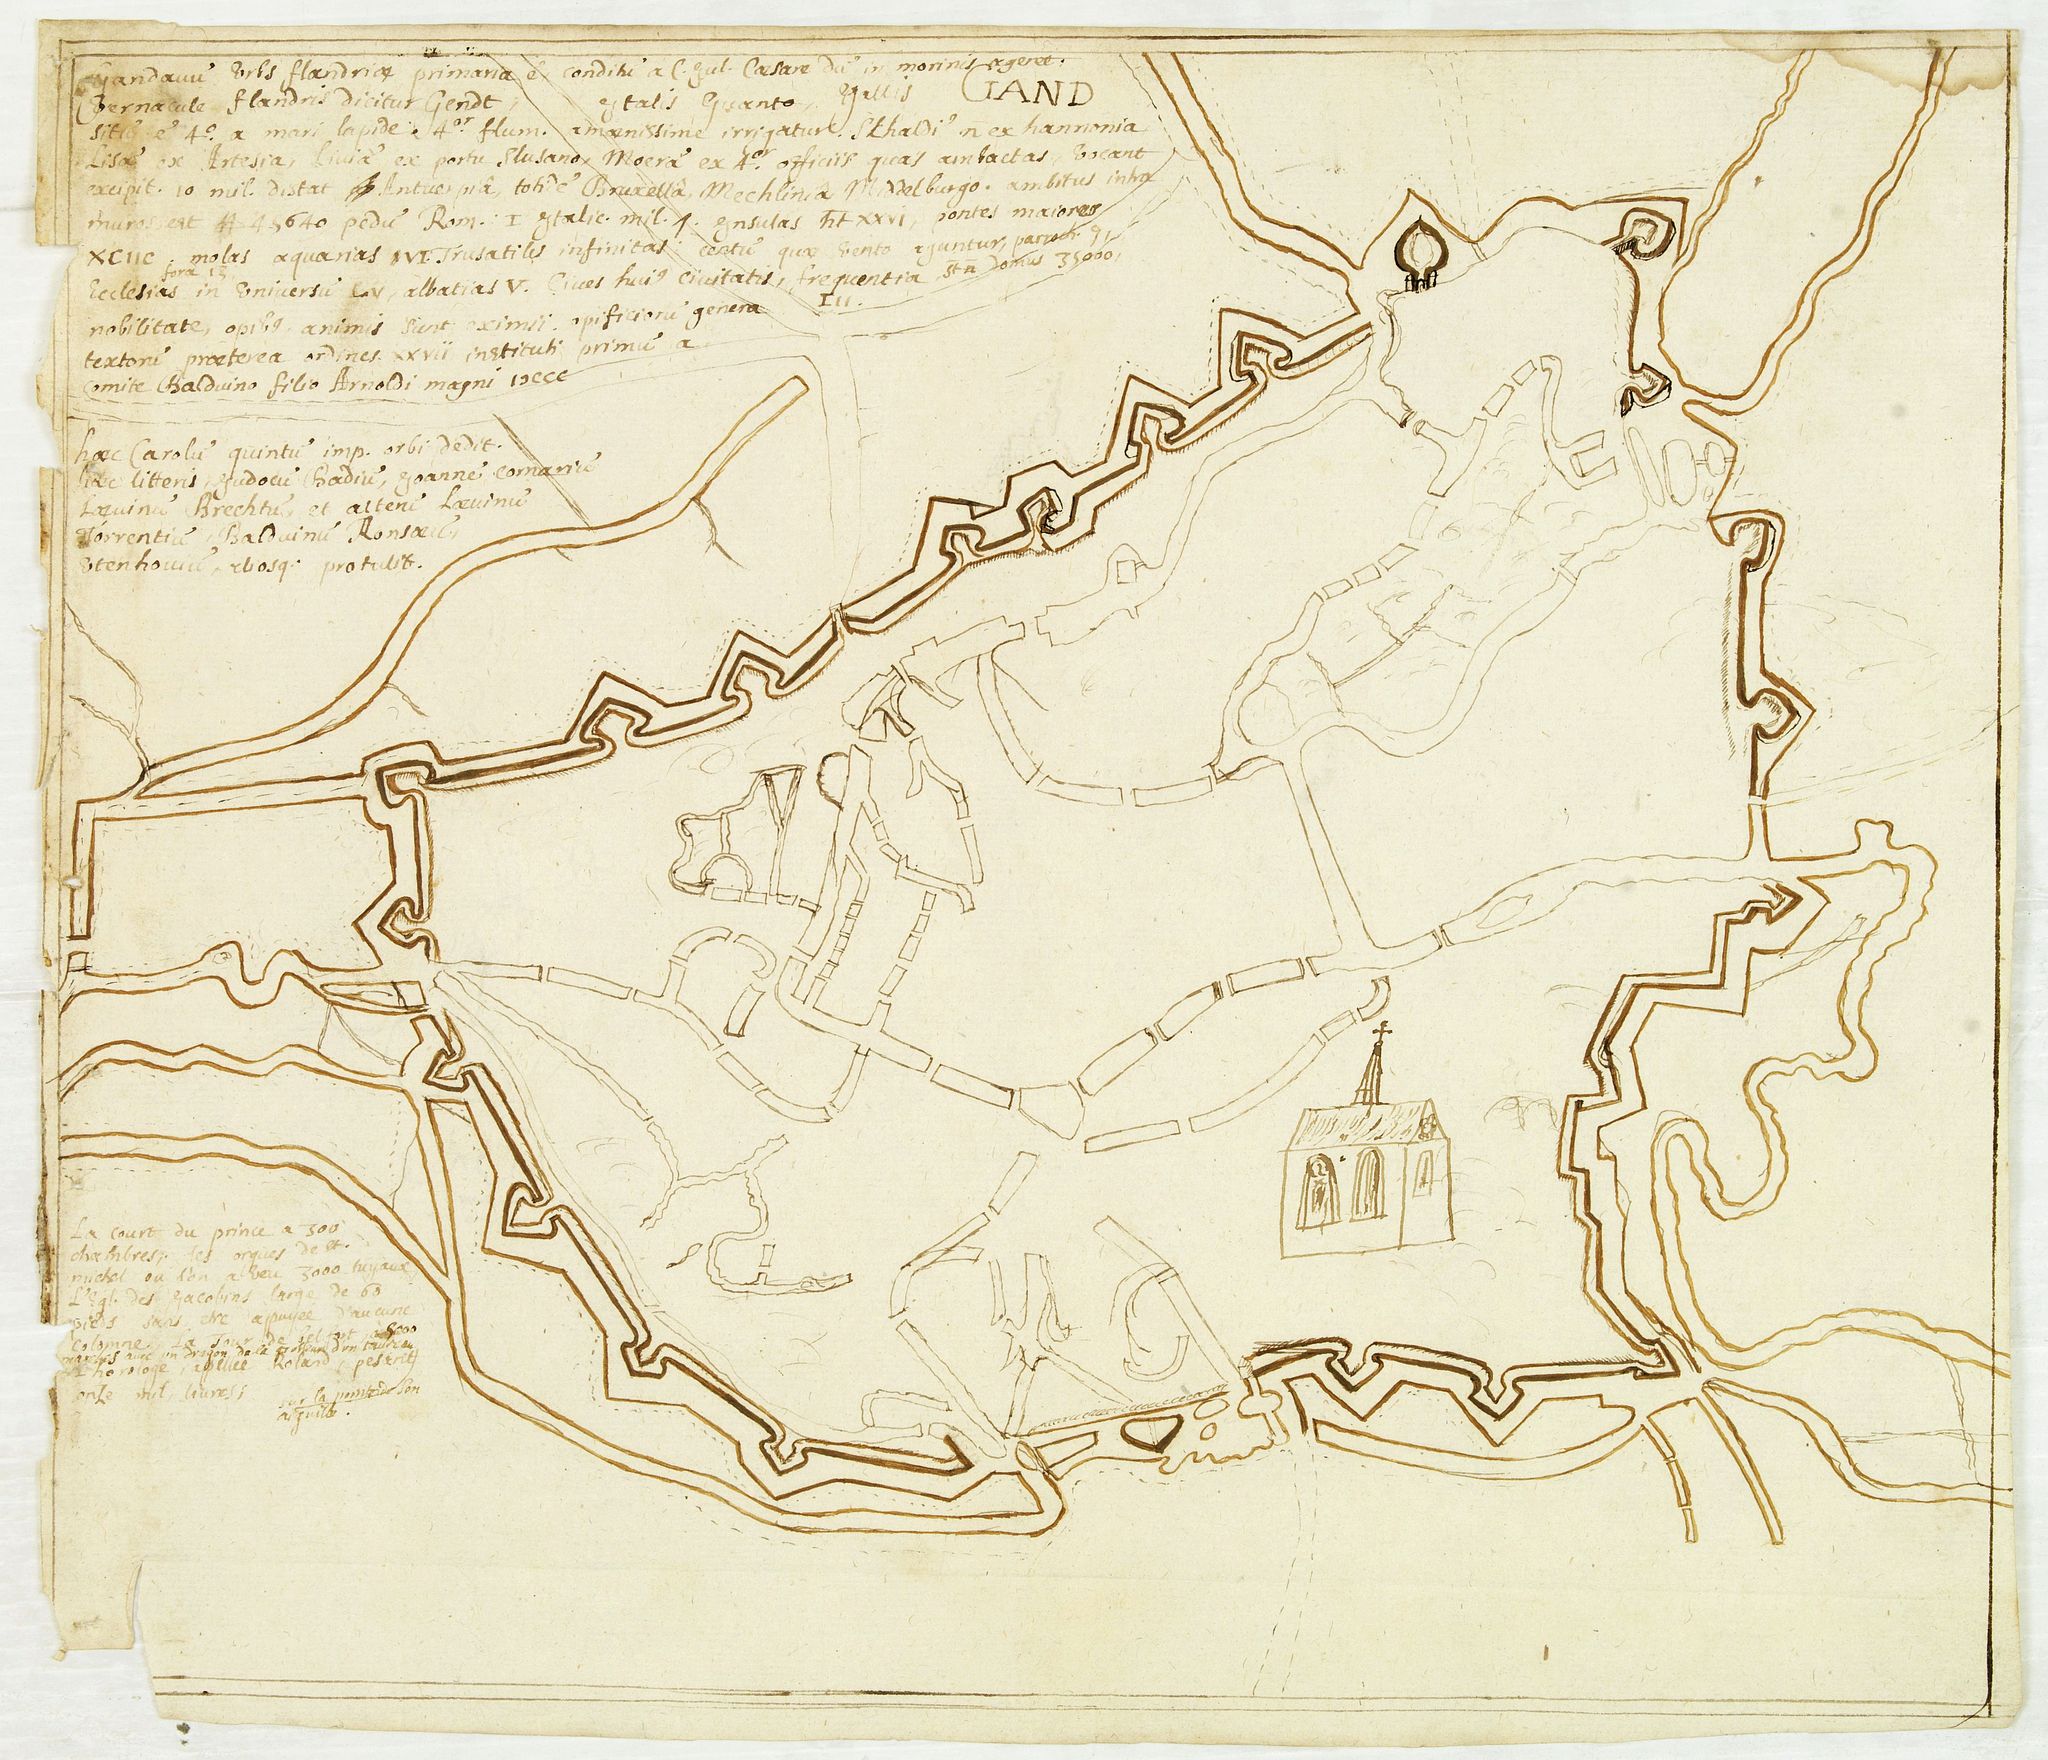 Gandavū Urbs flandriæ primaria ē conditū a C. Jul. Cæsare dū in morinis ageret.
Vernacule flandris dicitur Gendt, Italis Guanto, Gallis GAND
sitū ē 4º. a mari lapide 4or flum. amœnissime irrigatur Sthaldi ex hannonia
Lisæ ex Artesia, Liviā ex portu Slusano, Moerā ex 4or. officiis quas ambactas vocant
excipit. 10 mil. distat Antverpiā, totidē Bruxellā, Mechliniā Midelburgo. ambitus intra
muros est 45640 pedū Rom. Italic. mil. 9. Insulas ht XXVI, pontes maiores
XCIIC molas aquarias VI Trusatiles infinitas centū quæ vento aguntur, paroch 91
fora 13.
Ecclesias in Universū LV, albatias V. Cives hui9 Civitatis, frequentia domus 35000,
nobilitate, opib9, animis sunt eximii opificiorū genera III.
textorū præterea ordines XXVII instituti primū a
comite Balduino filio Arnoldi magni
hæc Carolū quintū imp. orbi dedit.
hæc litteris Judocū Badiū, Joannē
Lævinū Brechtū, et alterū Lævinū
Torrentiū, Balduinū Ronsæū,
protulit.
La court du prince a 300
chambres, les orgues de St.
michel ou l'on a veu 3000 tuyaux
L'Egl. des Jacobins large de 60
pieds sans etre appuyee d'aucune
colomne. La Tour de belfort a
marches avec un dragon de la d'un taureau
horologe, apellee Roland, pesant
onze mil, livres;
sur la pointe de son
aiguille.